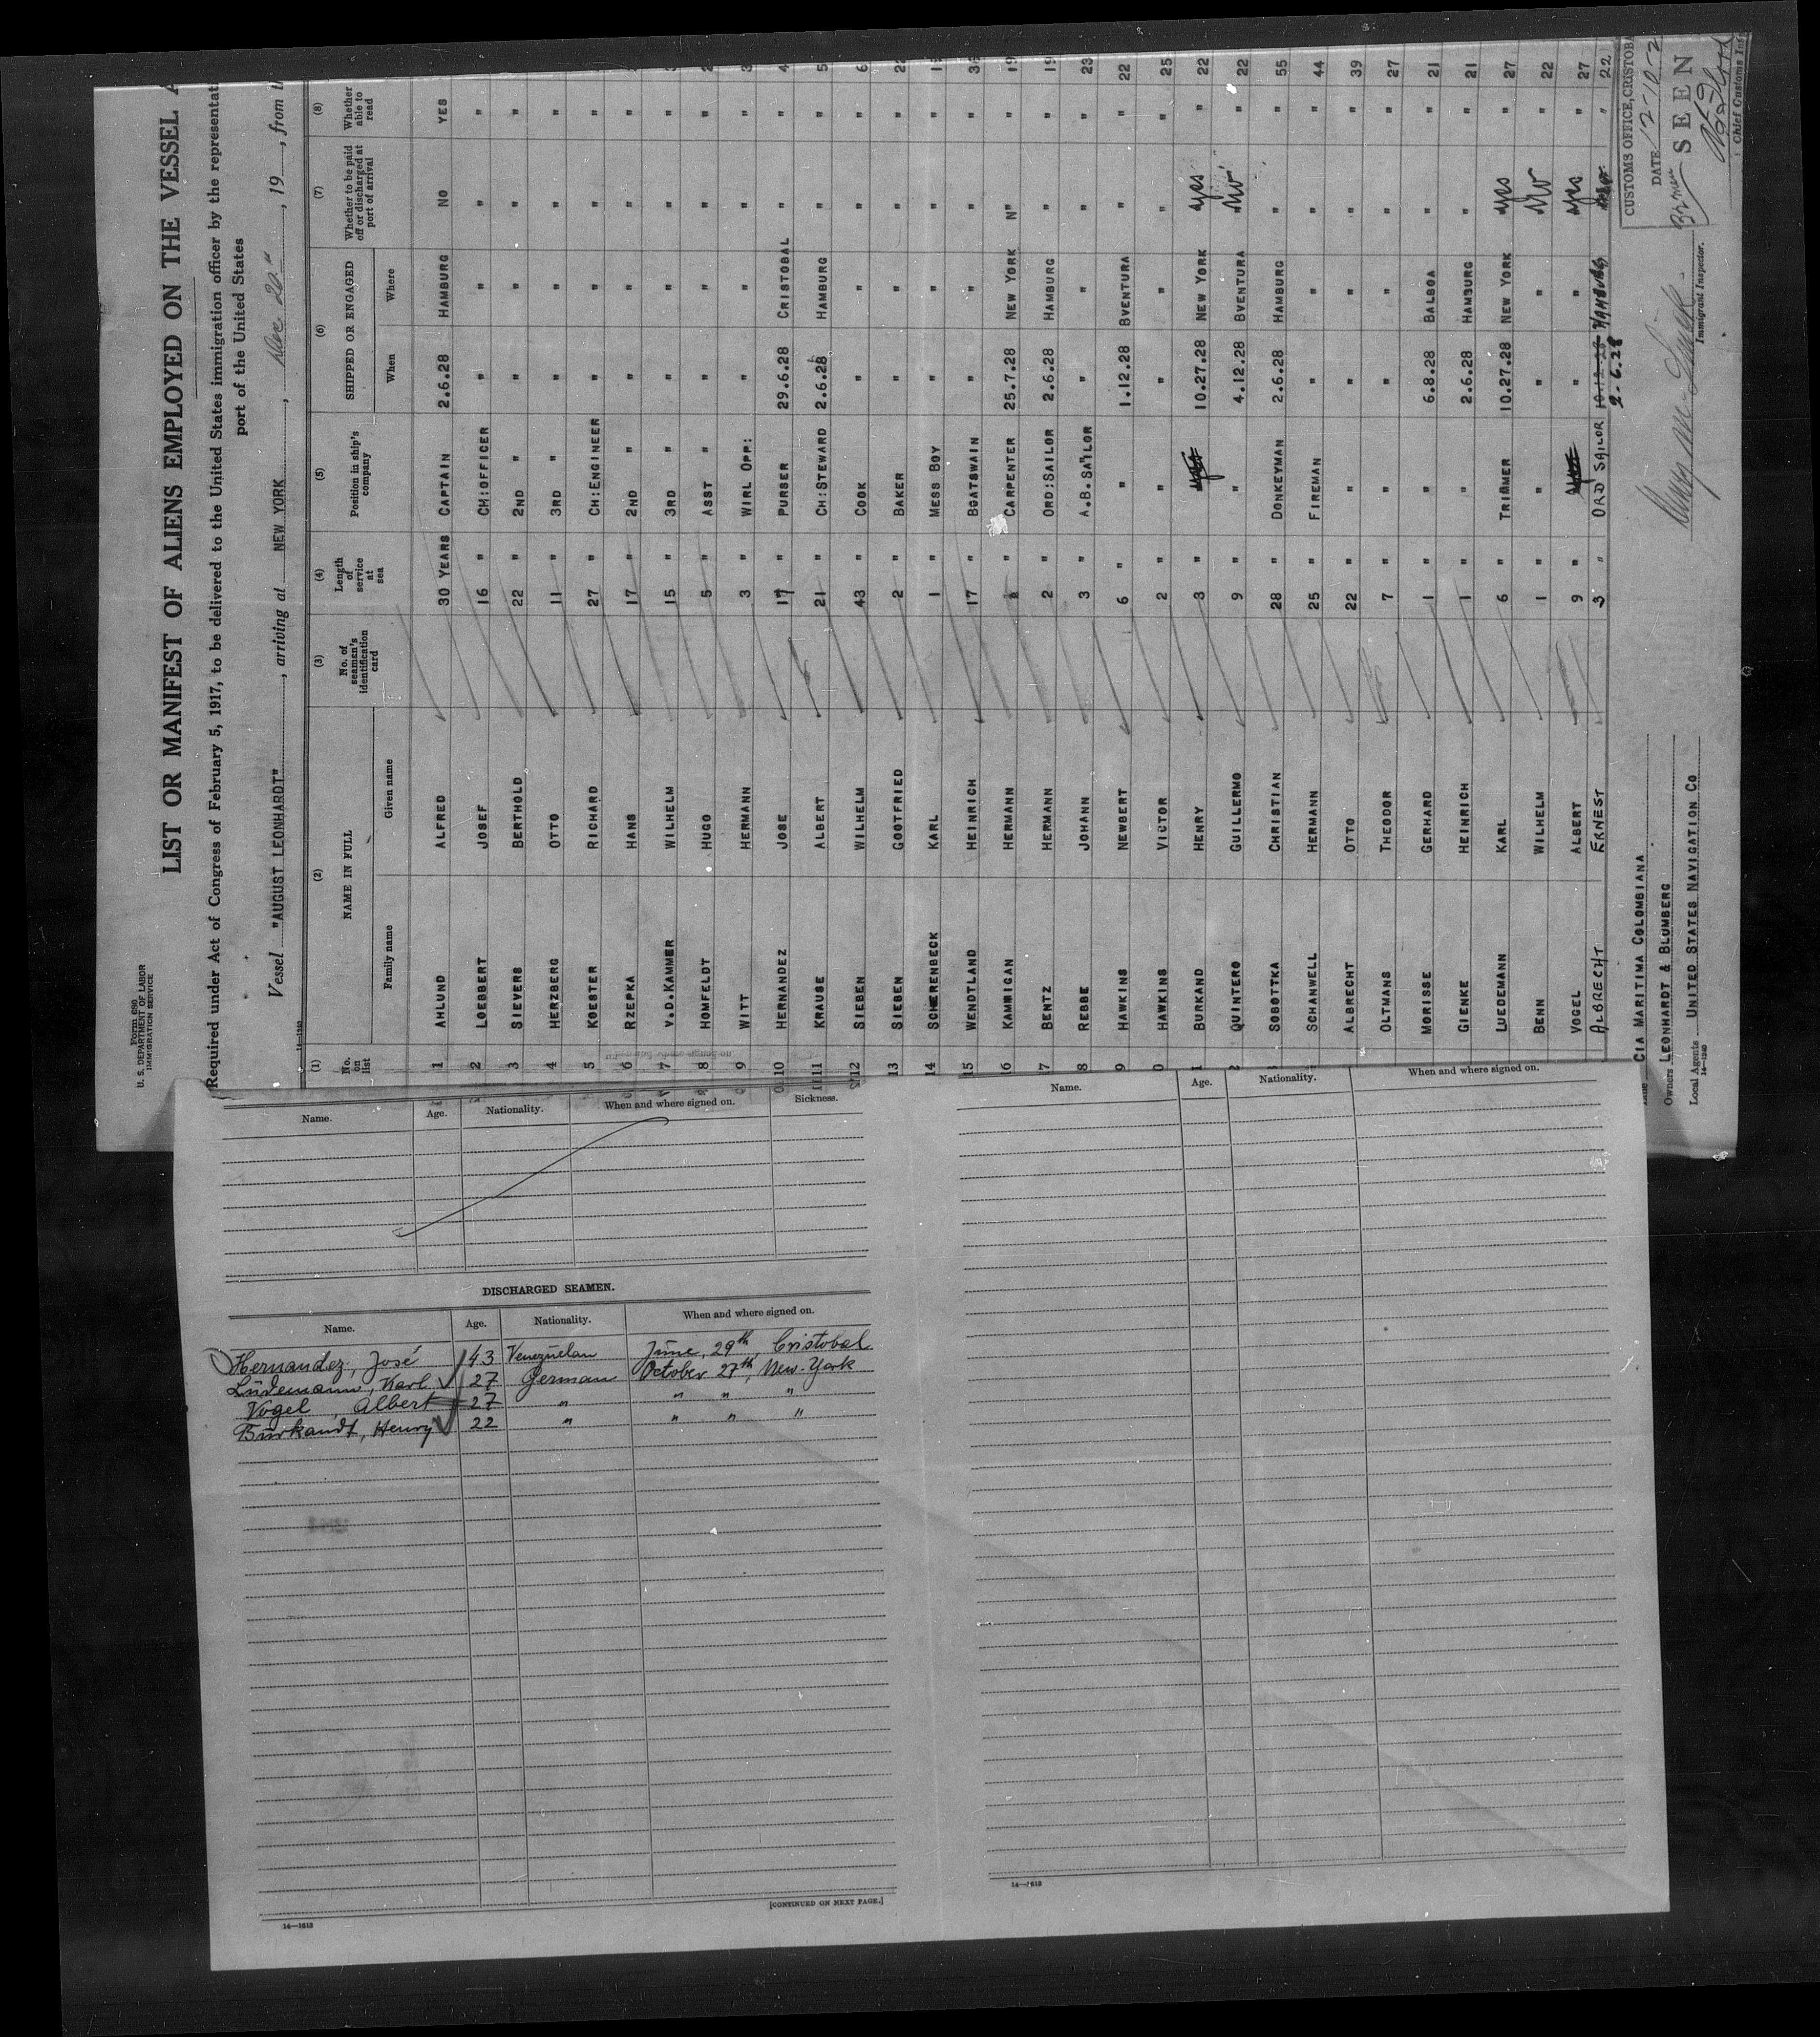 Form 680
U. S. DEPARTMENT OF LABOR
IMMIGRATION SERVICE
LIST OR MANIFEST OF ALIENS EMPLOYED ON THE VESSEL A
Required under Act of Congress of February 5, 1917, to be delivered to the United States immigration officer by the representat
port of the United States
Vessel "AUGUST LEONHARDT", arriving at NEW YORK, Dec 20", 19 , from
14—1240
(1) (2) (3) (4) (5) (6) (7) (8)
No. on list NAME IN FULL No. of seaman's identification card Length of service at sea Position in ship's company SHIPPED OR ENGAGED Whether to be paid off or discharged at port of arrival Whether able to read
Family name Given name When Where
1 AHLUND ALFRED 30 YEARS CAPTAIN 2.6.28 HAMBURG NO YES
2 LOEBBERT JOSEF 16 " CH:OFFICER " " " "
3 SIEVERS BERTHOLD 22 " 2ND " " " " "
4 HERZBERG OTTO 11 " 3RD " " " " "
5 KOESTER RICHARD 27 " CH:ENGINEER " " " "
6 RZEPKA HANS 17 " 2ND " " " " "
7 V.D.KAMMER WILHELM 15 " 3RD " " " " "
8 HOMFELDT HUGO 5 " ASST " " " " "
9 WITT HERMANN 3 " WIRL OPP: " " " " 3
10 HERNANDEZ JOSE 17 " PURSER 29.6.28 CRISTOBAL " " 4
11 KRAUSE ALBERT 21 " CH:STEWARD 2.6.28 HAMBURG " " 5
12 SIEBEN WILHELM 43 " COOK " " " " 6
13 SIEBEN GOTFRIED 2 " BAKER " " " " 22
14 SCHERENBECK KARL 1 " MESS BOY " " " "
15 WENDTLAND HEINRICH 17 " BOATSWAIN " " " "
16 KAMMIGAN HERMANN " CARPENTER 25.7.28 NEW YORK N" " 19
17 BENTZ HERMANN 2 " ORD:SAILOR 2.6.28 HAMBURG " " 19
8 REBBE JOHANN 3 " A.B.SAILOR " " " " 23
9 HAWKINS NEWBERT 6 " " 1.12.28 BVENTURA " " 22
0 HAWKINS VICTOR 2 " " " " " " 25
1 BURKAND HENRY 3 " 10.27.28 NEW YORK yes " 22
2 QUINTERO GUILLERMO 9 " " 4.12.28 BVENTURA No " 22
SOBOTTKA CHRISTIAN 28 " DONKEYMAN 2.6.28 HAMBURG " " 55
SCHANWELL HERMANN 25 " FIREMAN " " " " 44
ALBRECHT OTTO 22 " " " " " " 39
OLTMANS THEODOR 7 " " " " " " 27
MORISSE GERHARD 1 " " 6.8.28 BALBOA " " 21
GIENKE HEINRICH 1 " " 2.6.28 HAMBURG " " 21
LUEDEMANN KARL 6 " TRIMMER 10.27.28 NEW YORK yes " 27
BENN WILHELM 1 " " " " No " 22
VOGEL ALBERT 9 " " " yes " 27
ALBRECHT ERNEST 3 " ORD SAILOR 10.12.28 HAMBURG " 22
2.6.28
CIA MARITIMA COLOMBIANA
Owners LEONHARDT & BLUMBERG
Local Agents UNITED STATES NAVIGATION CO
14—1240
Immigrant Inspector.
CUSTOMS OFFICE, CRISTOBA
DATE 12-10-2
32 men SEEN
Chief Customs Ins
Name. Age. Nationality. When and where signed on. Sickness.
DISCHARGED SEAMEN.
Name. Age. Nationality. When and where signed on.
Hernandez, José 43 Venezuelan June, 29th, Cristobal
Lüdemann, Karl 27 German October 27th, New-York
Vogel, Albert 27 " " " "
Bürkandt, Henry 22 " " " "
[CONTINUED ON NEXT PAGE.]
14—1613
Name. Age. Nationality. When and where signed on.
14—1613